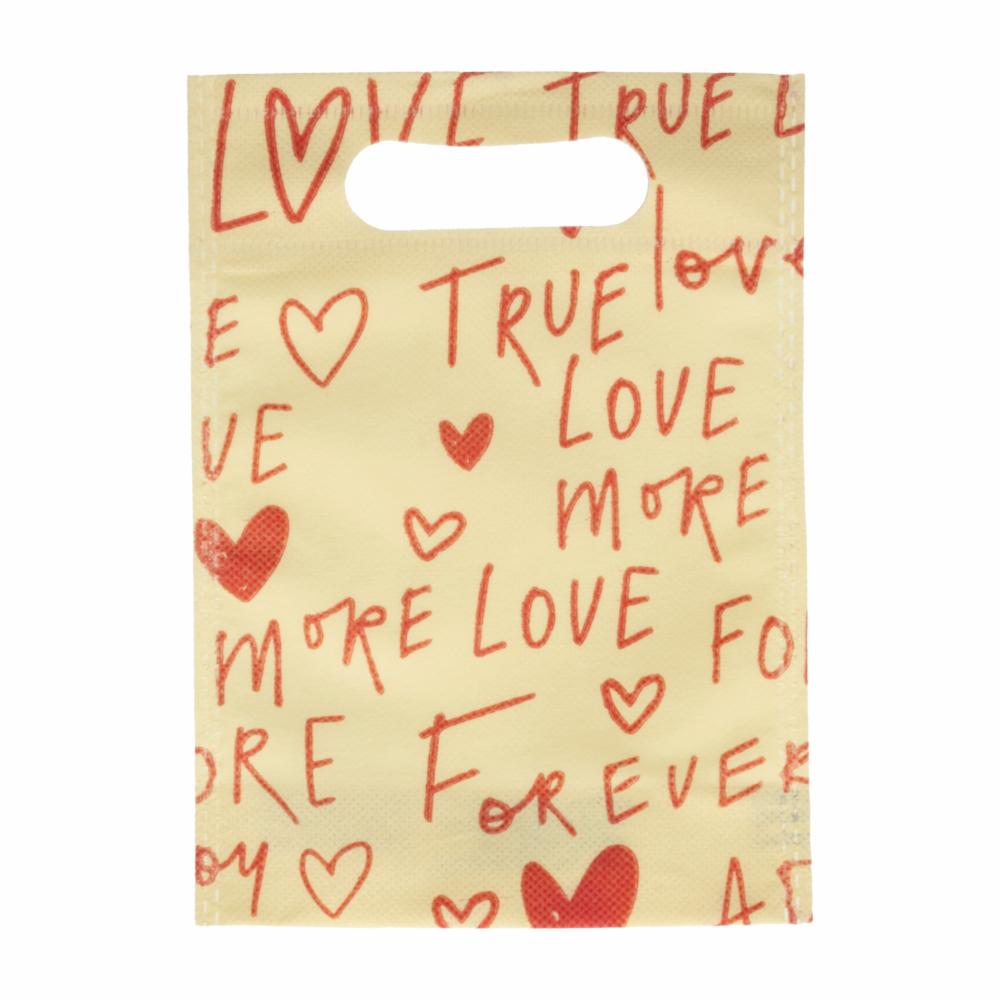 LOVE TRUE L
love
E TRUE
LOVE
VE
MORE
MORE LOVE
FO
ORE FOREVER
oy